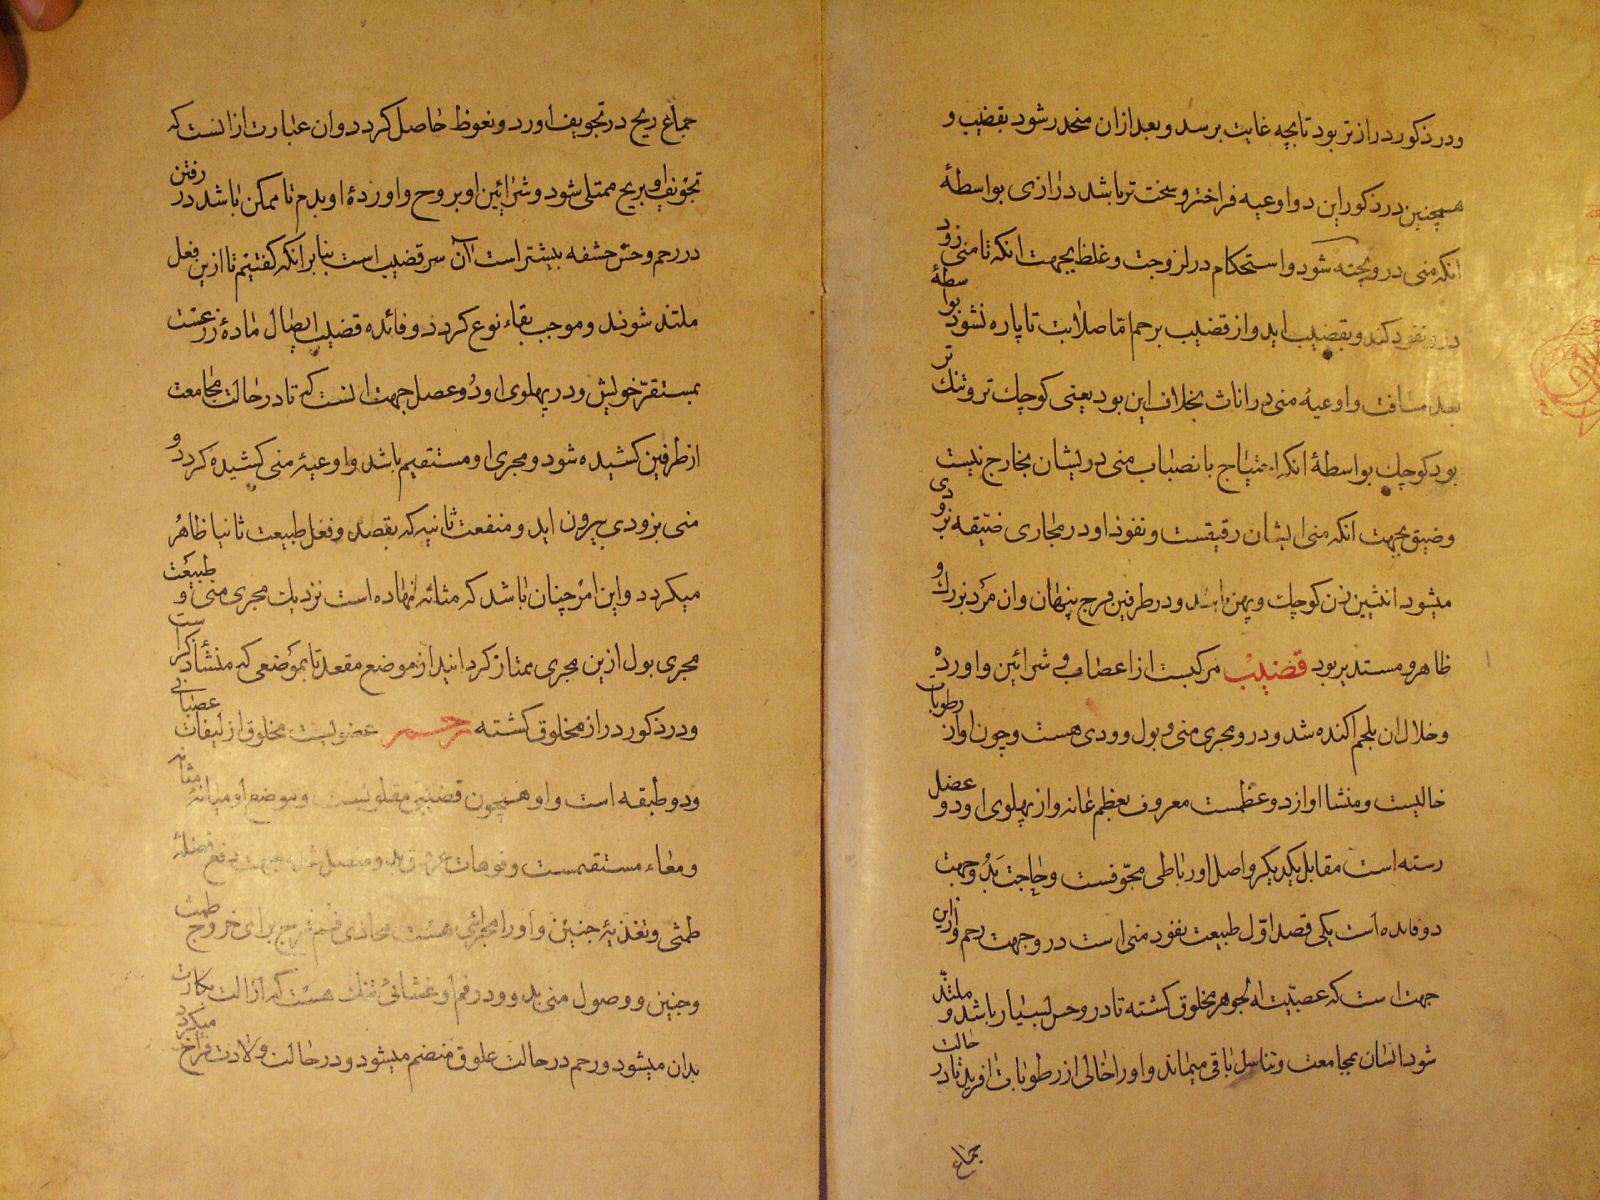 ودر ذکور دراز تر بود تا بچه غایت برسد و بعد ازان منحدر شود بقضیب و
همچنین در ذکور این دو اوعیه فراختر و سخت تر باشد درازی بواسطهٔ
انکه منی درو پخته شود و استحکام در لزوجت و غلظ بجهت انکه تا منی زود
درو نفوذ کند و بقضیب اید و از قضیب برحم اما صلابت تا پاره نشود بواسطهٔ
بعد مسافت و اوعیهٔ منی در اناث بخلاف این بود یعنی کوچك تر و تنك تر
بود کوچك بواسطهٔ انکه احتیاج بانصباب منی دریشان بخارج نیست
و ضیق بجهت انکه منی ایشان رقیقست و نفوذ او در مجاری ضیقه بزودی
میشود انثیین زن کوچك و پهن باشد و در طرفین فرج پنهان وان مرد بزرك و
ظاهر و مستدیر بود قضیب مرکبست از اعصاب و شرائین و اورده
و خلال ان بلحم اکنده شد و درو مجری منی و بول و ودی هست و چون او از رطوبات
خالیست و منشا او از دو عظمست معروف بعظم عانه و از پهلوی او دو عضل
رسته است مقابل یکدیکر و اصل او رباطی مجوفست و حاجت بدو جهت
دو فائده است یکی قصد اول طبیعت نفوذ منی است در وجهت رحم و ازین
جهت است که عصبیت الجوهر مخلوق کشته تا درو حس بسیار باشد و ملتذ
شود انسان بمجامعت و تناسل باقی میماند و او را خالی از رطوبات افرید تا در حالت
جماع
جماع ریح در تجویف اورد و نعوظ حاصل کردد وان عبارت ازانست که
تجویف او بریح ممتلی شود و شرائین او بروح و اوردهٔ او بدم تا ممکن باشد در رفتن
در رحم و حس حشفه بیشتر است آن سر قضیب است بنابر انکه کفتیم تا ازین فعل
ملتذ شوند و موجب بقاء نوع کردد و فائده قضیب ایصال مادهٔ زرعست
بمستقر خویش و در پهلوی او دو عضل جهت انست که تا در حالت مجامعت
از طرفین کشیده شود و مجری او مستقیم باشد و اوعیهٔ منی کشیده کردد و
منی بزودی بیرون اید و منفعت ثانیه که بقصد و فعل طبیعت ثانیا ظاهر
میکردد و این امر چنان باشد که مثانه نهاده است نزدیك مجری منی و طبیعت
مجری بول ازین مجری ممتاز کردانید از موضع مقعد تا بموضعی که منشأ ذکر است
و در ذکور دراز مخلوق کشته رحم عضویست مخلوق از لیفات عصبانی
و دو طبقه است و او همچون قضیبی مقلوبست و موضع او میانهٔ مثانه
و معاء مستقیمست و فوهات عروق بدو متصل جهت دفع فضلهٔ
طمثی و تغذیهٔ جنین و او را مجرائی هست محاذی فم فرج برای خروج طمث
و جنین و وصول منی بد و و در فم او غشائی تنك هست که ازالت بکارت
بدان میشود و رحم در حالت علوق منضم میشود و در حالت ولادت فراخ میکردد